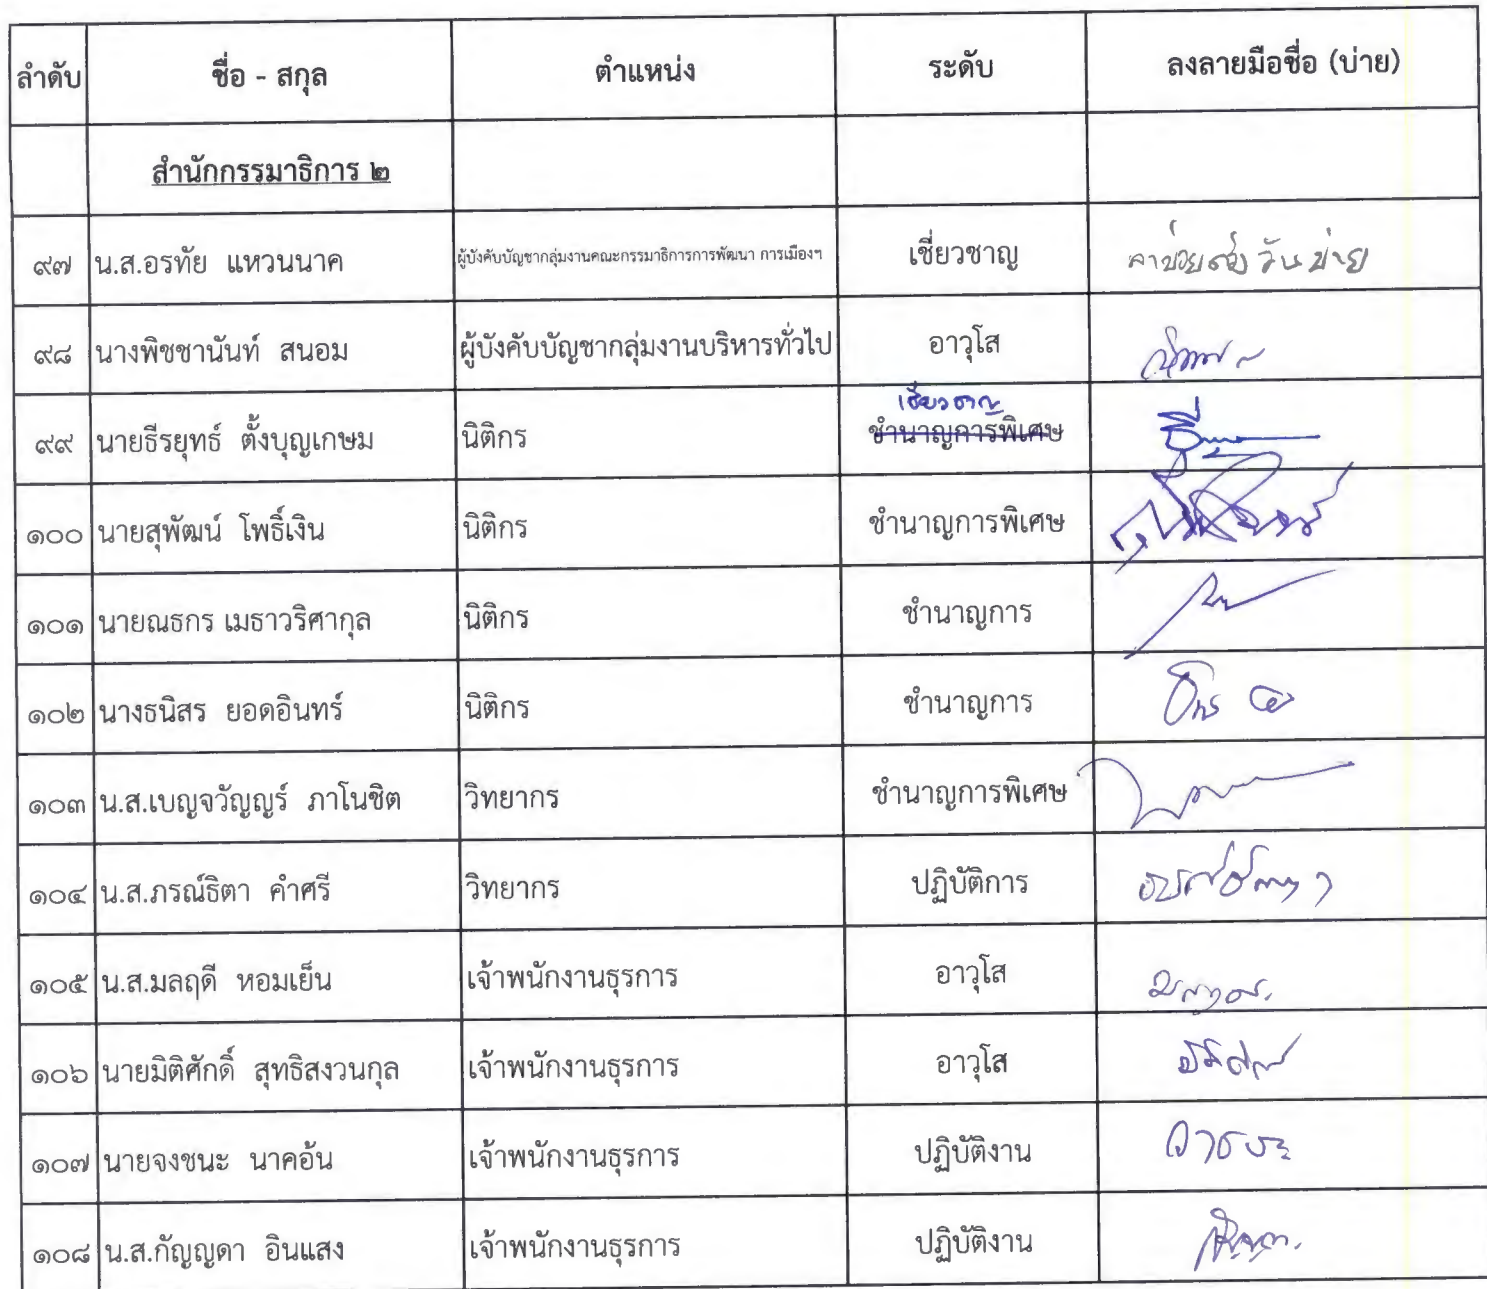 ลำดับ ชื่อ - สกุล ตำแหน่ง ระดับ ลงลายมือชื่อ (บ่าย)
สำนักกรรมาธิการ ๒
๙๗ น.ส.อรทัย แหวนนาค ผู้บังคับบัญชากลุ่มงานคณะกรรมาธิการการพัฒนา การเมืองฯ เชี่ยวชาญ ลาป่วยครึ่งวันบ่าย
๙๘ นางพิชชานันท์ สนอม ผู้บังคับบัญชากลุ่มงานบริหารทั่วไป อาวุโส
เชี่ยวชาญ
๙๙ นายธีรยุทธ์ ตั้งบุญเกษม นิติกร ชำนาญการพิเศษ
๑๐๐ นายสุพัฒน์ โพธิ์เงิน นิติกร ชำนาญการพิเศษ
๑๐๑ นายณธกร เมธาวริศากุล นิติกร ชำนาญการ
๑๐๒ นางธนิสร ยอดอินทร์ นิติกร ชำนาญการ
๑๐๓ น.ส.เบญจวัญญร์ ภาโนชิต วิทยากร ชำนาญการพิเศษ
๑๐๔ น.ส.ภรณ์ธิตา คำศรี วิทยากร ปฏิบัติการ
๑๐๕ น.ส.มลฤดี หอมเย็น เจ้าพนักงานธุรการ อาวุโส
๑๐๖ นายมิติศักดิ์ สุทธิสงวนกุล เจ้าพนักงานธุรการ อาวุโส
๑๐๗ นายจงชนะ นาคอ้น เจ้าพนักงานธุรการ ปฏิบัติงาน
๑๐๘ น.ส.กัญญดา อินแสง เจ้าพนักงานธุรการ ปฏิบัติงาน